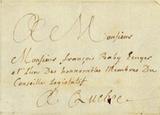 A Monsieur
Monsieur François Baby Ecuyer
et l'un Des honnorables Membres Du
Conseille Legislatif
A Quebec